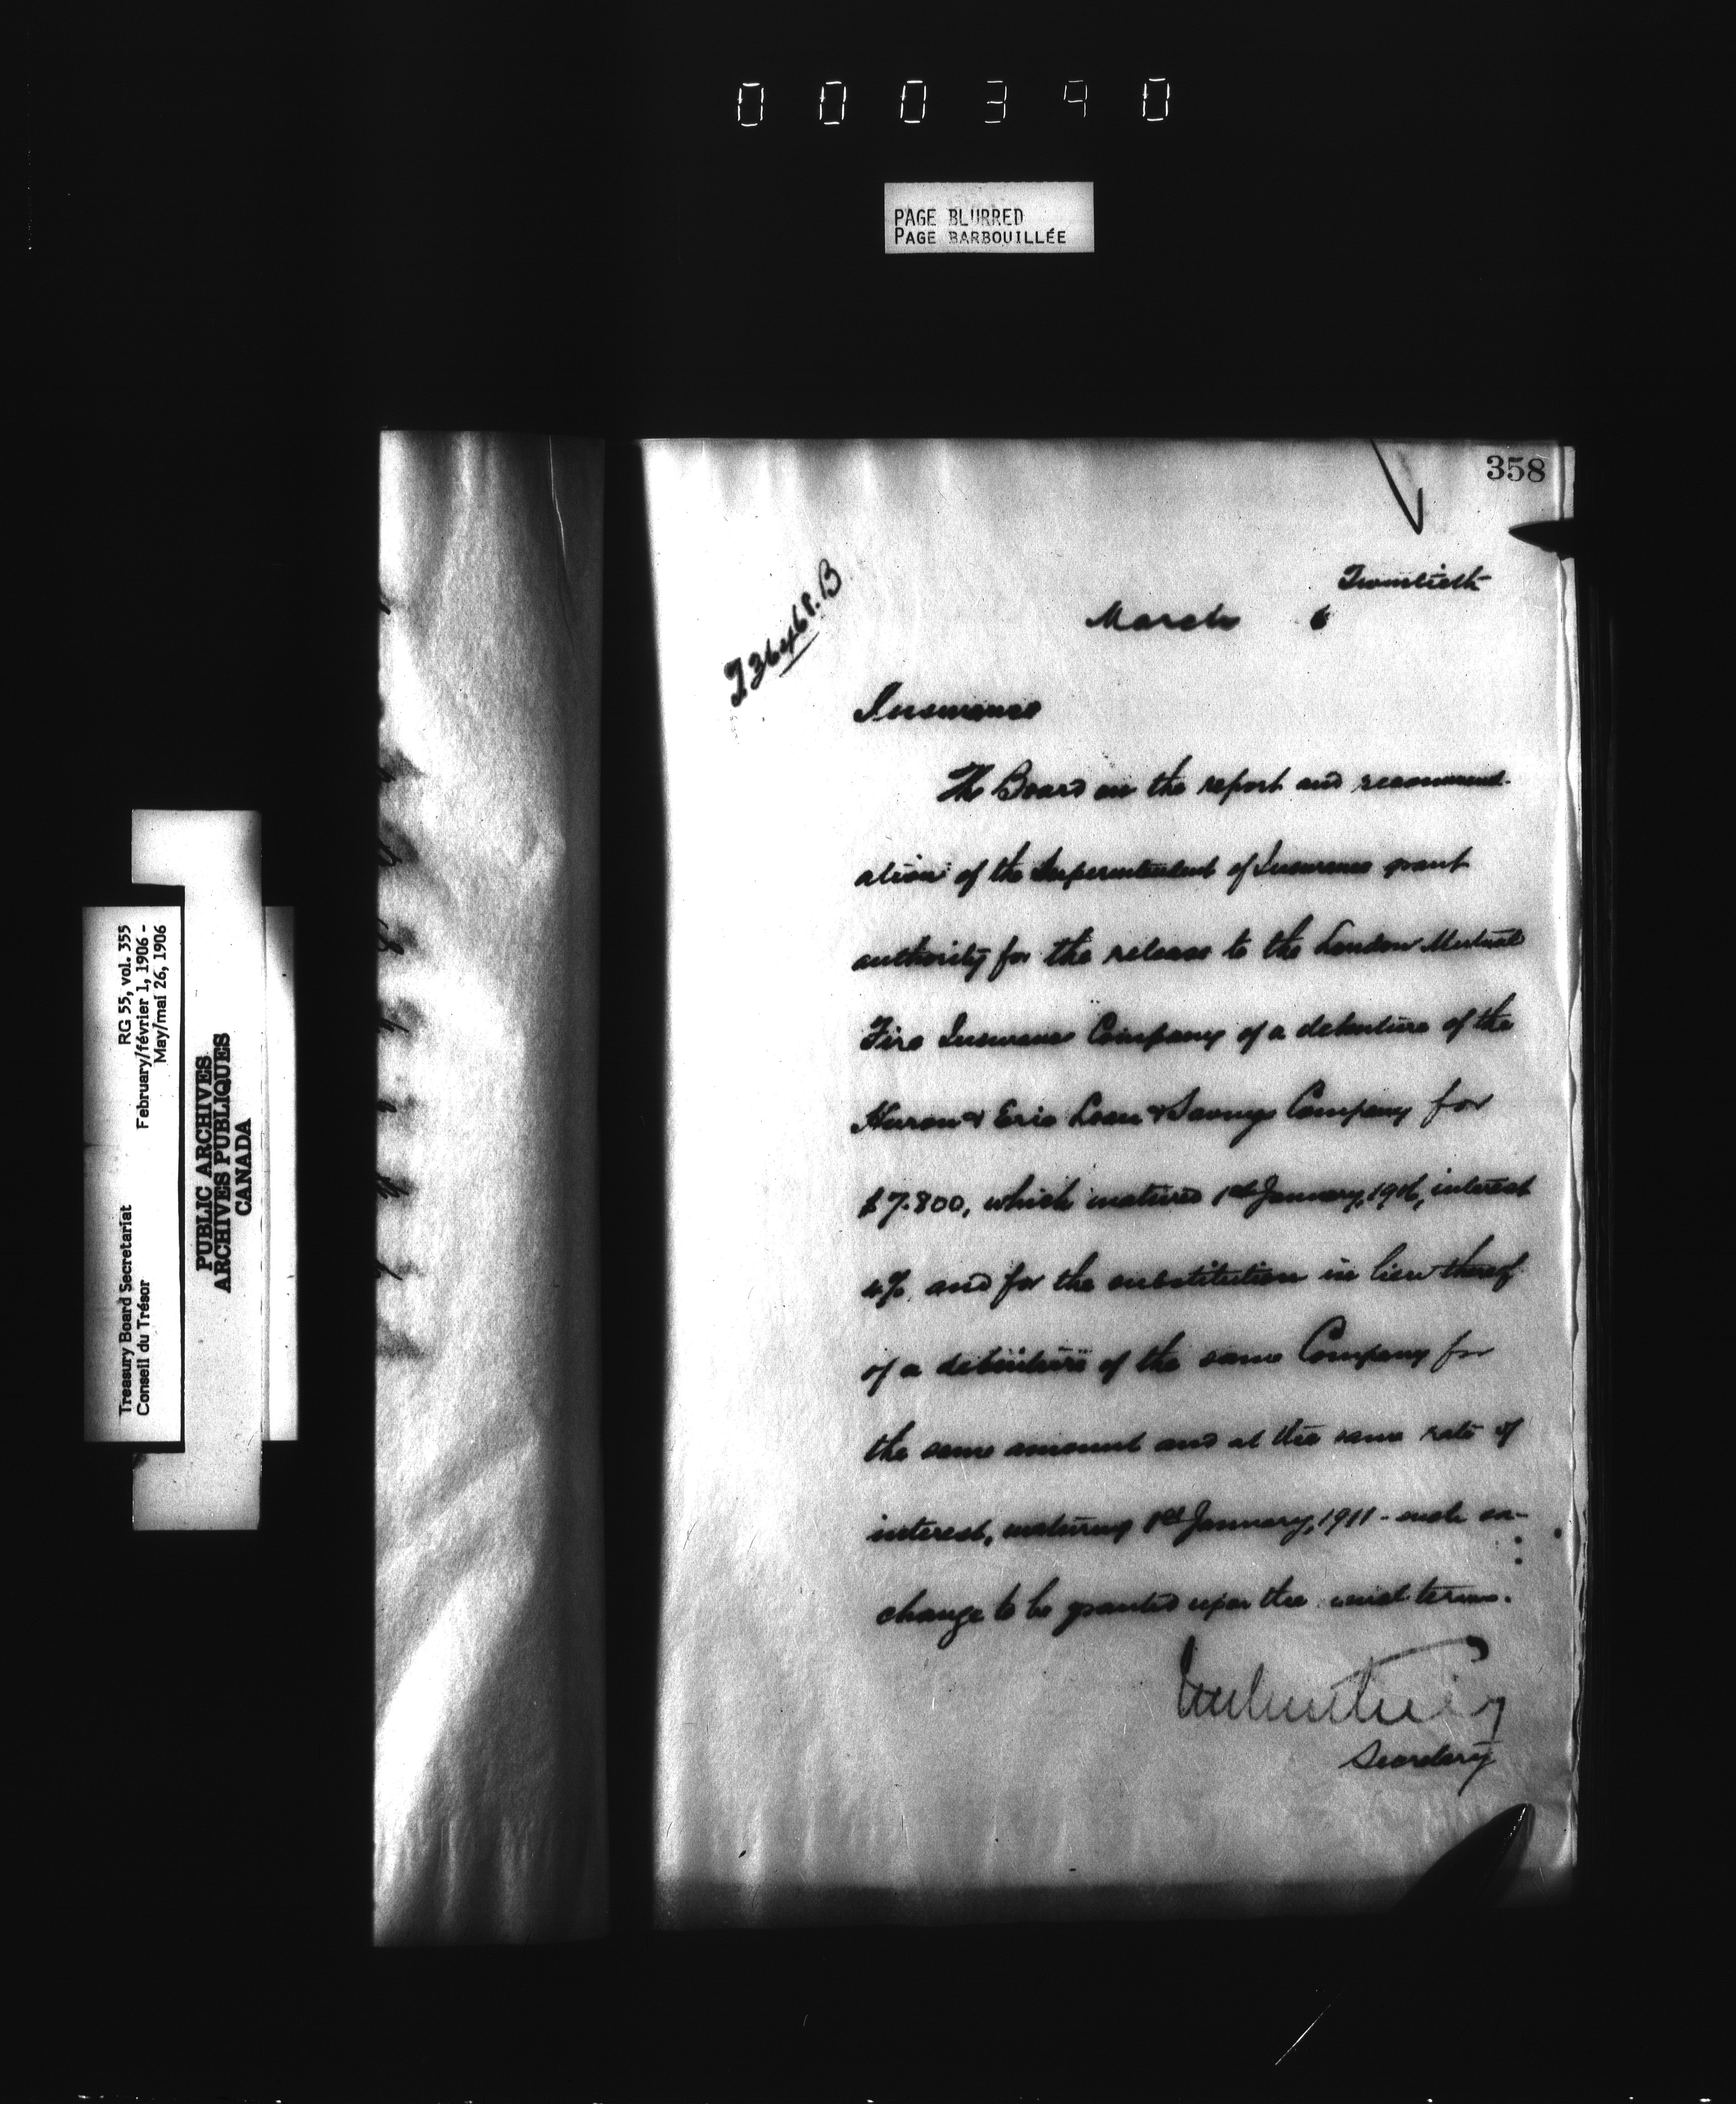 000390
PAGE BLURRED
PAGE BARBOUILLÉE
Treasury Board Secretariat RG 55, vol. 355
Conseil du Trésor February/février 1, 1906 -
May/mai 26, 1906
PUBLIC ARCHIVES
ARCHIVES PUBLIQUES
CANADA
358
Twentieth
March 6
Insurance
The Board on the report and recommend-
ation of the Superintendent of Insurance grant
authority for the release to the London Mutual
Fire Insurance Company of a debenture of the
Huron & Erie Loan & Savings Company for
$7.800, which matured 1st January, 1906, interest
4%. and for the substitution in lieu thereof
of a debenture of the same Company for
the same amount and at the same rate of
interest, maturing 1st January, 1911 - such ex-
change to be granted upon the usual terms.
Secretary